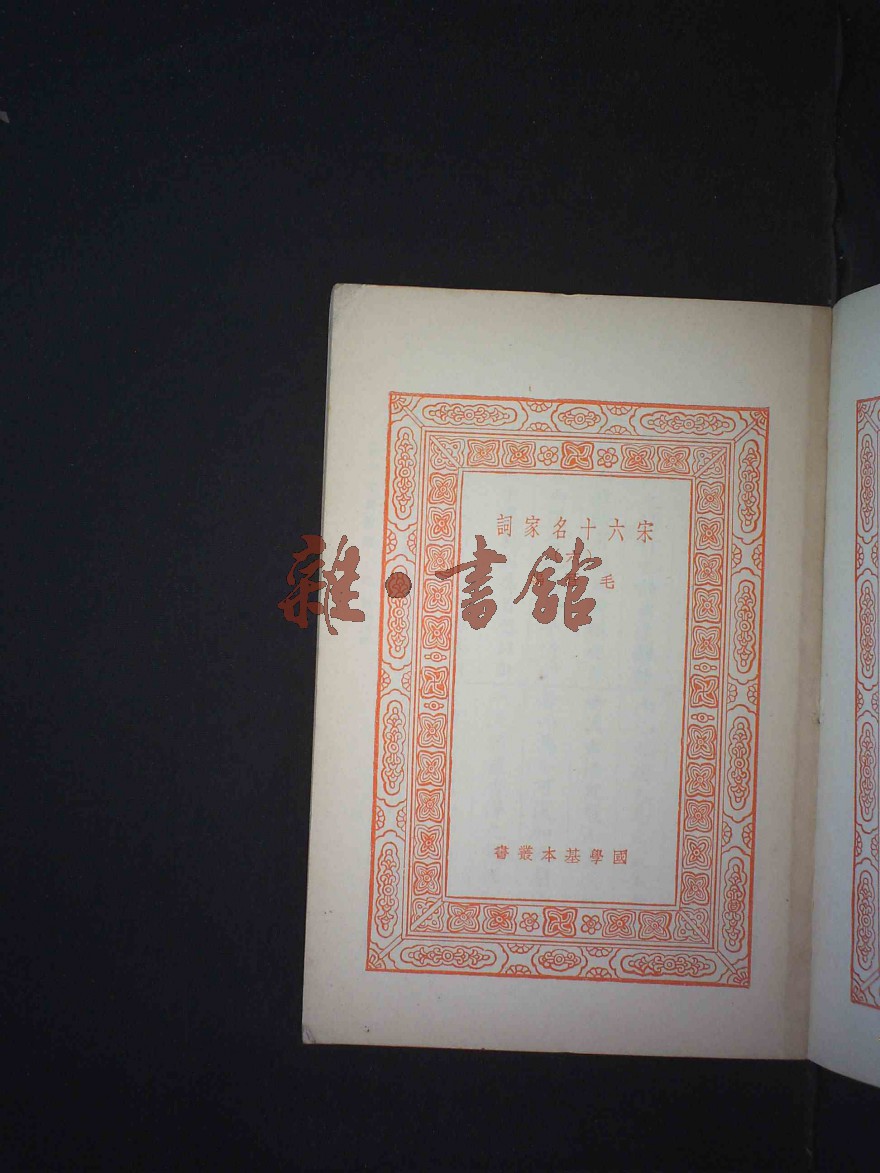 宋六十名家詞
六
毛
國學基本叢書
雜·書館